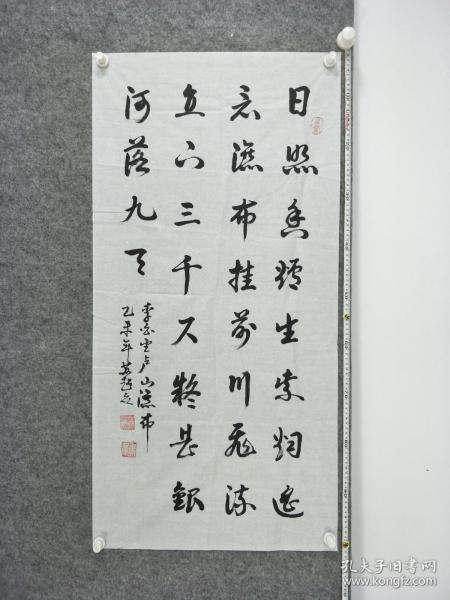 日照香炉生紫烟遥
看瀑布挂前川飞流
直下三千尺疑是银
河落九天
李白望庐山瀑布
乙未年
孔夫子旧书网
www.kongfz.com